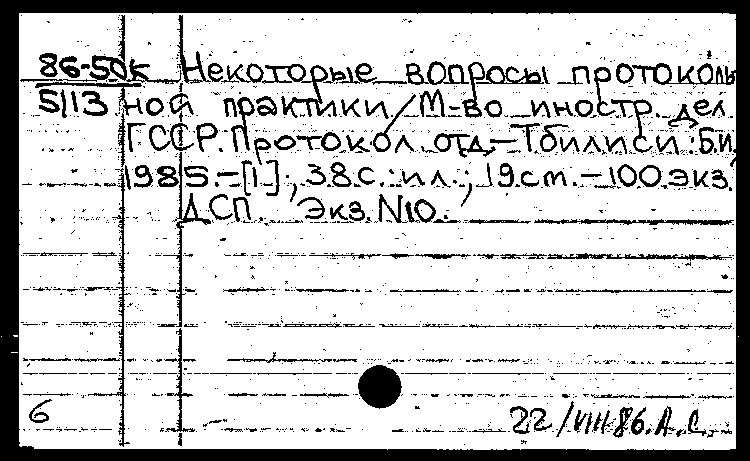 86-50к Некоторые вопросы протоколь
5113 ной практики / М-во иностр. дел
ГССР. Протокол. отд. – Тбилиси : Б.и.,
1985. – [1], 38 с. : ил. ; 19 см. – 100 экз.
ДСП. Экз. N10.
6
22/VIII 86. А.С.